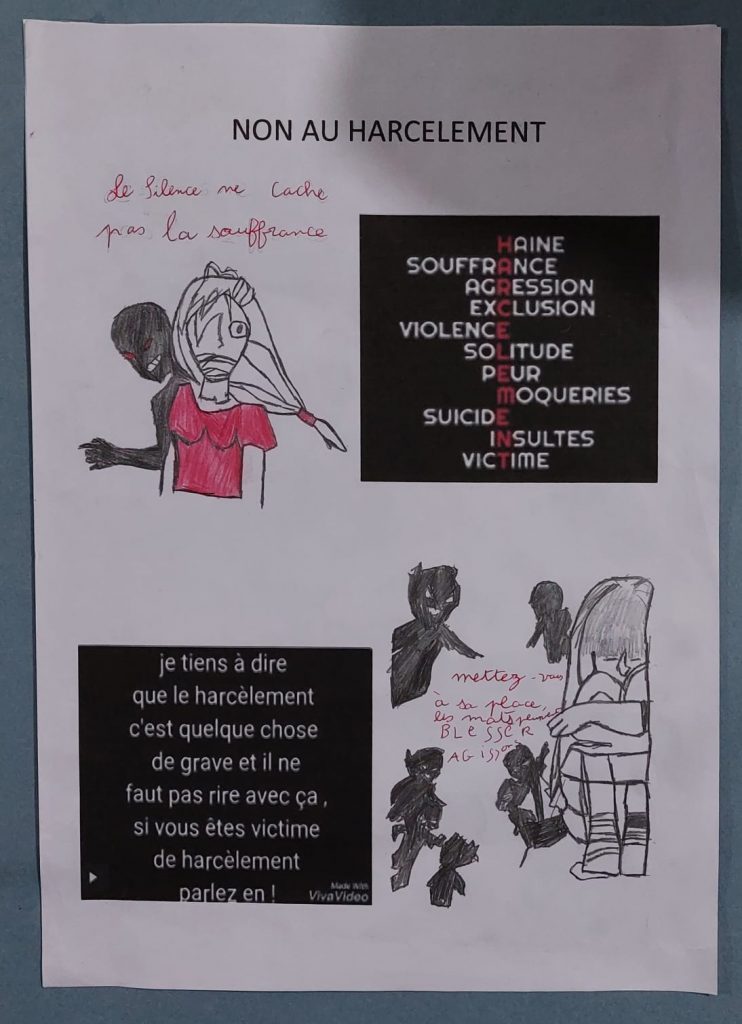 NON AU HARCELEMENT
Le Silence ne cache
pas la souffrance
HAINE
SOUFFRANCE
AGRESSION
EXCLUSION
VIOLENCE
SOLITUDE
PEUR
MOQUERIES
SUICIDE
INSULTES
VICTIME
je tiens à dire
que le harcèlement
c'est quelque chose
de grave et il ne
faut pas rire avec ça ,
si vous êtes victime
de harcèlement
parlez en !
Made With
VivaVideo
mettez-vous
à sa place,
les mots peuvent
BLESSER